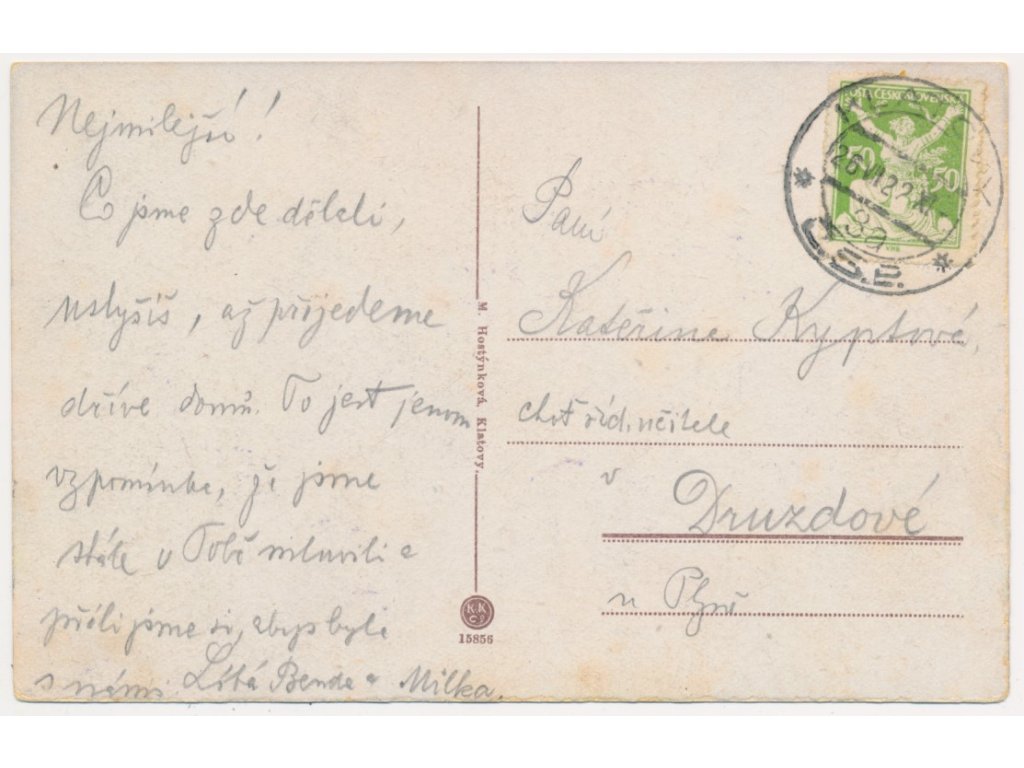 Nejmilejší!
Co jsme zde dělali,
uslyšíš, až přijedeme
dříve domů. To jest jenom
vzpomínka, že jsme
stále o Tobě mluvili a
přáli jsme si, abys byla
s námi. Benda a Milka.
M. Hostýnková, Klatovy.
K.K
15856
POŠTA ČESKOSLOVENSKÁ
50 50
26.VI.22
3a
Č.S.P.
Paní
Kateřine Kyptové,
choť říd. učitele
v
Druzdové
u Plzně